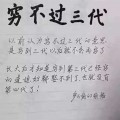 穷不过三代
以前认为穷不过三代的意思
是穷到三代以后就不会再穷了
长大后才知是穷到第三代已经穷
的连媳妇都娶不到了,也就没有
第四代了!